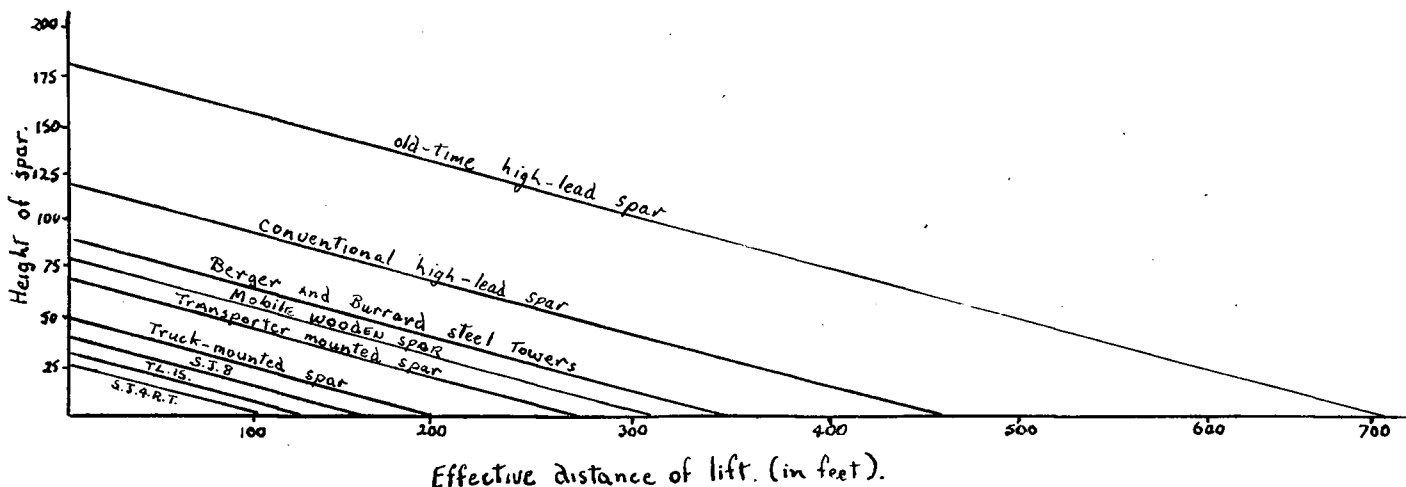 200
175
150
125
100
75
50
25
Height of spar.
old-time high-lead spar
Conventional high-lead spar
Berger AND Burrard steel Towers
MOBILE WOODEN SPAR
Transporter mounted spar
Truck-mounted spar
S.J.8
TL.15.
S.J.4.R.T.
100 200 300 400 500 600 700
Effective distance of lift. (in feet).